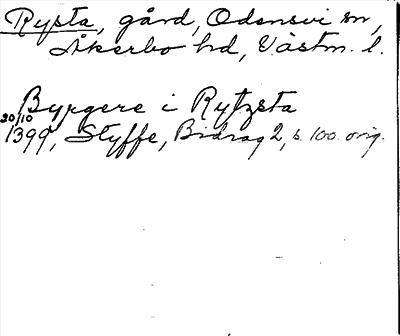 Rysta, gård, Odensvi sn,
Åkerbo hd, Västm. l.
Byrgere i Rytzsta
20/10
1399, Styffe, Bidrag 2, s. 100. orig.